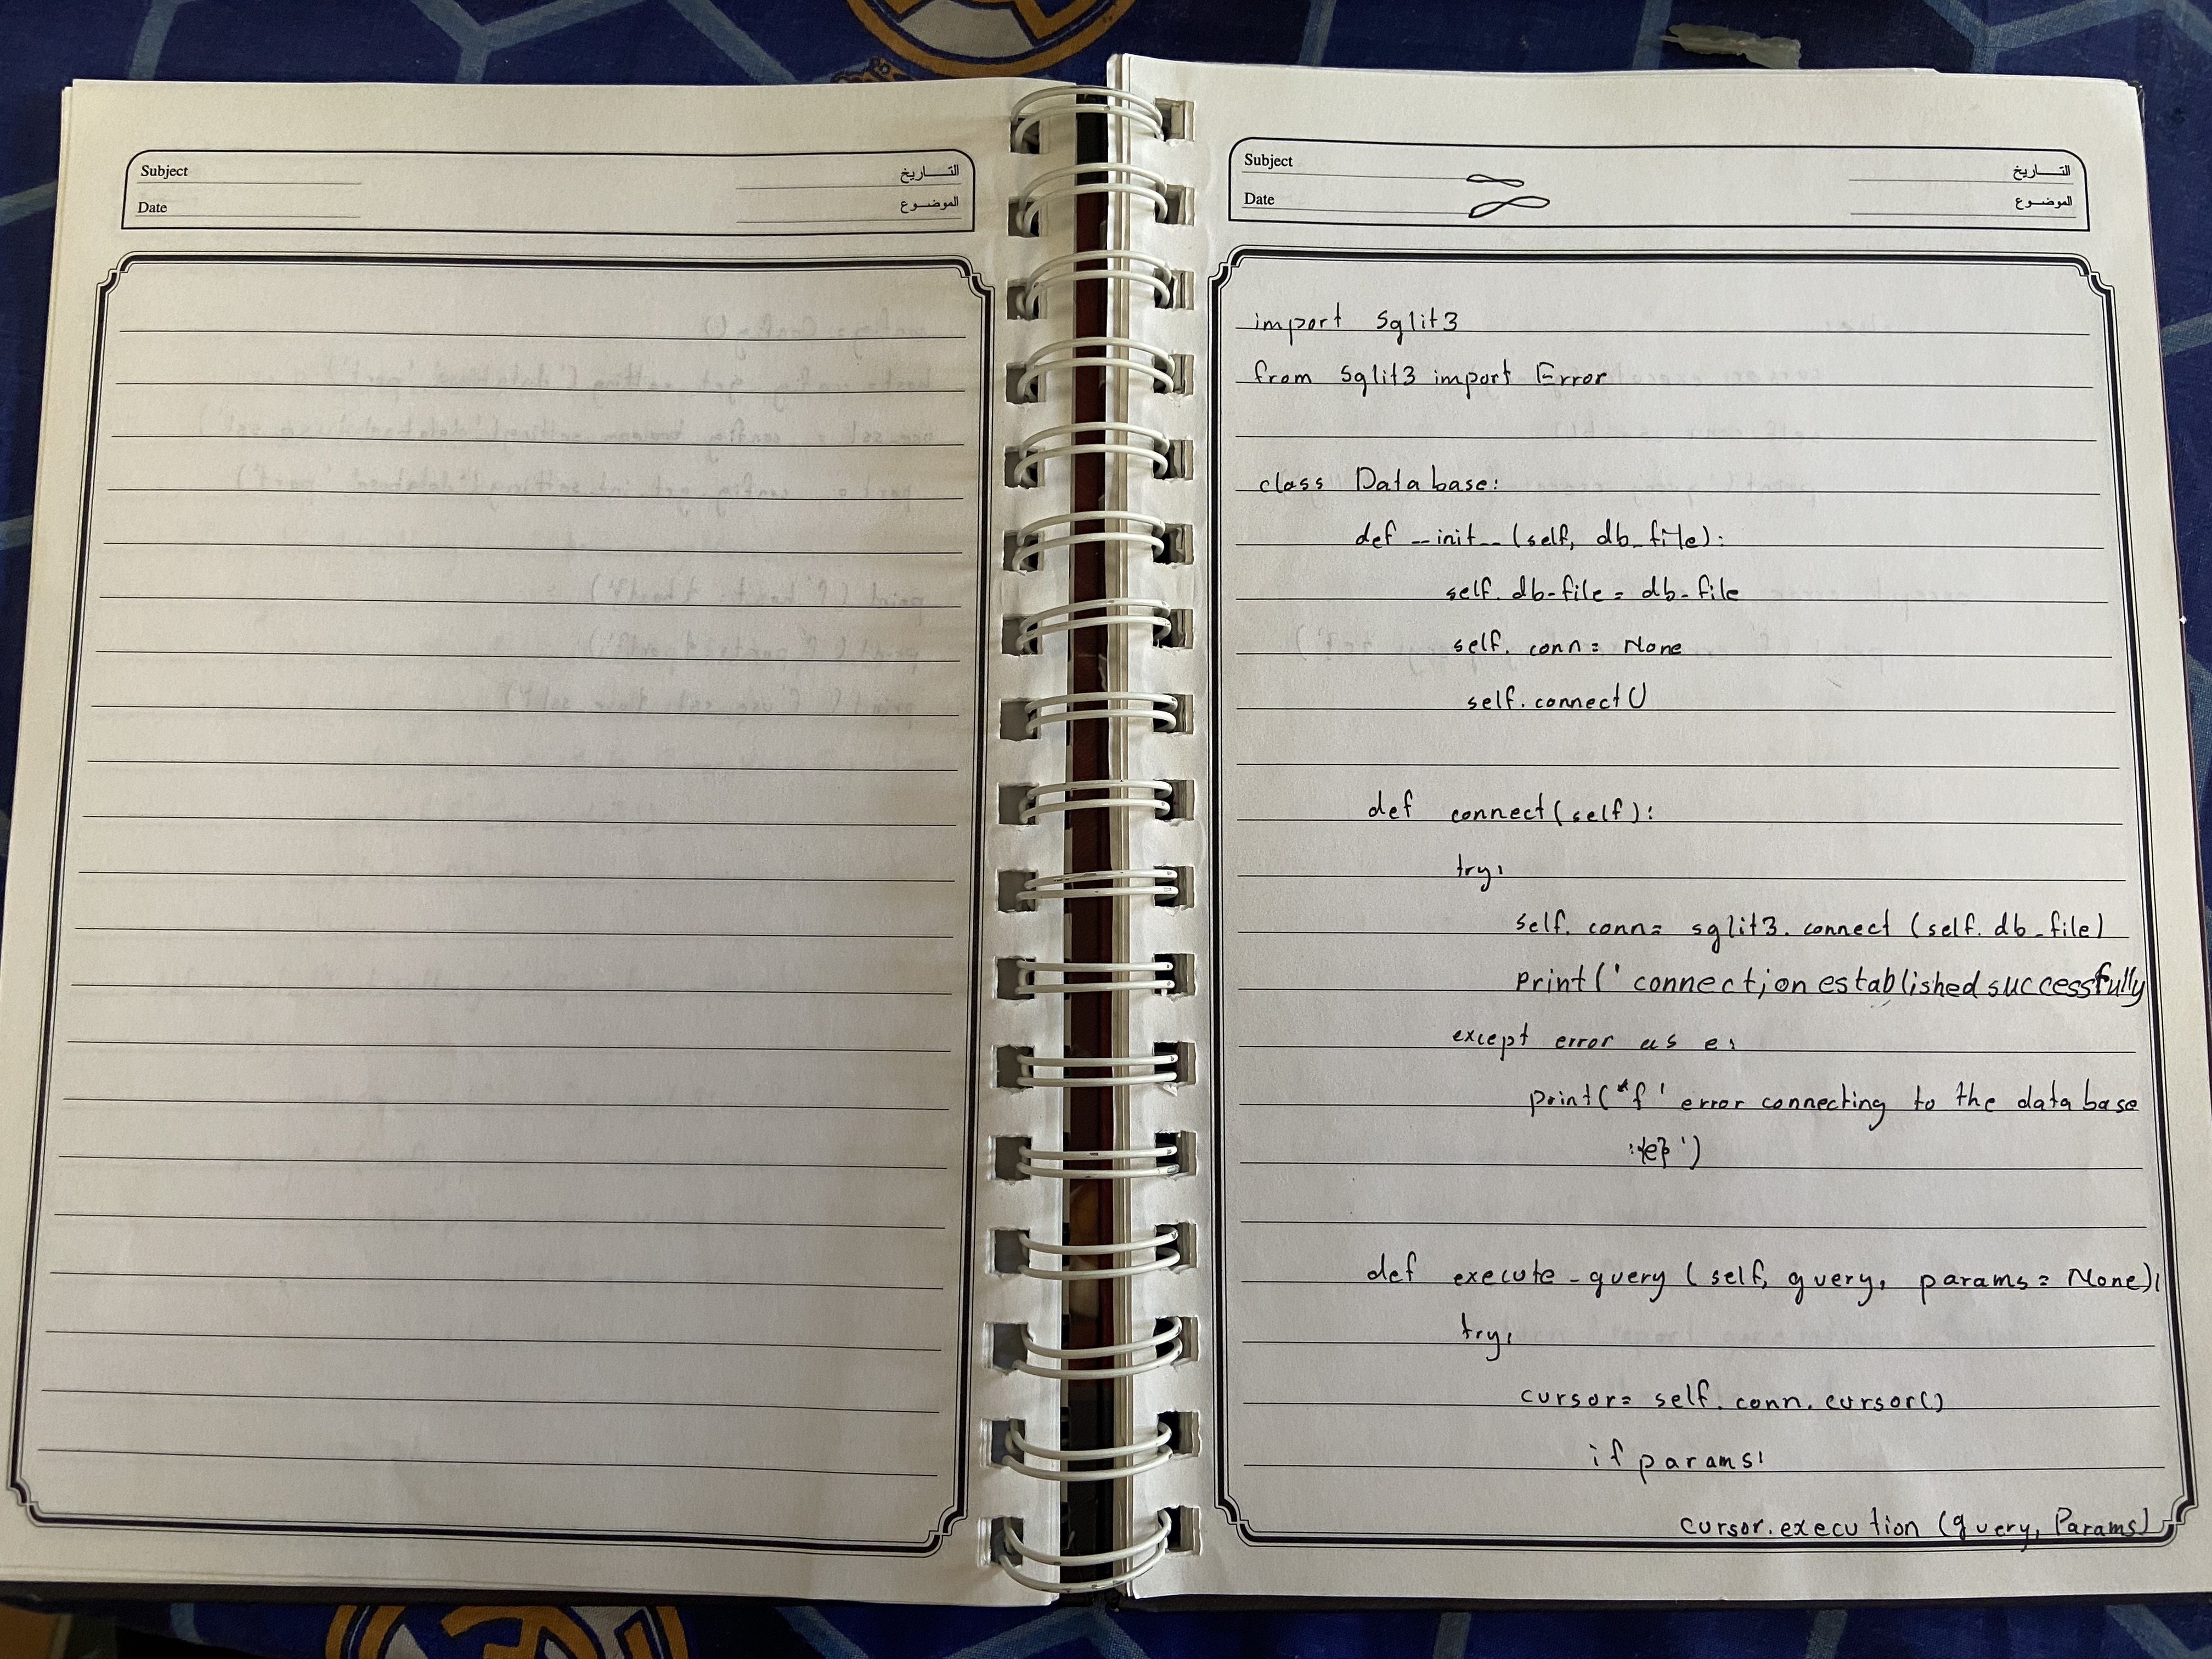 Subject
التـــاريخ
Date
الموضـــوع
Subject
التـــاريخ
Date
الموضـــوع
import sqlit3
from sqlit3 import Error
class Database:
def __init__(self, db_file):
self.db-file = db-file
self.conn = None
self.connect()
def connect(self):
try:
self.conn = sqlit3.connect(self.db_file)
print('connection established successfully
except error as e:
print(f' error connecting to the database
:{e}')
def execute-query(self, query, params = None):
try:
cursor = self.conn.cursor()
if params:
cursor.execution(query, Params)